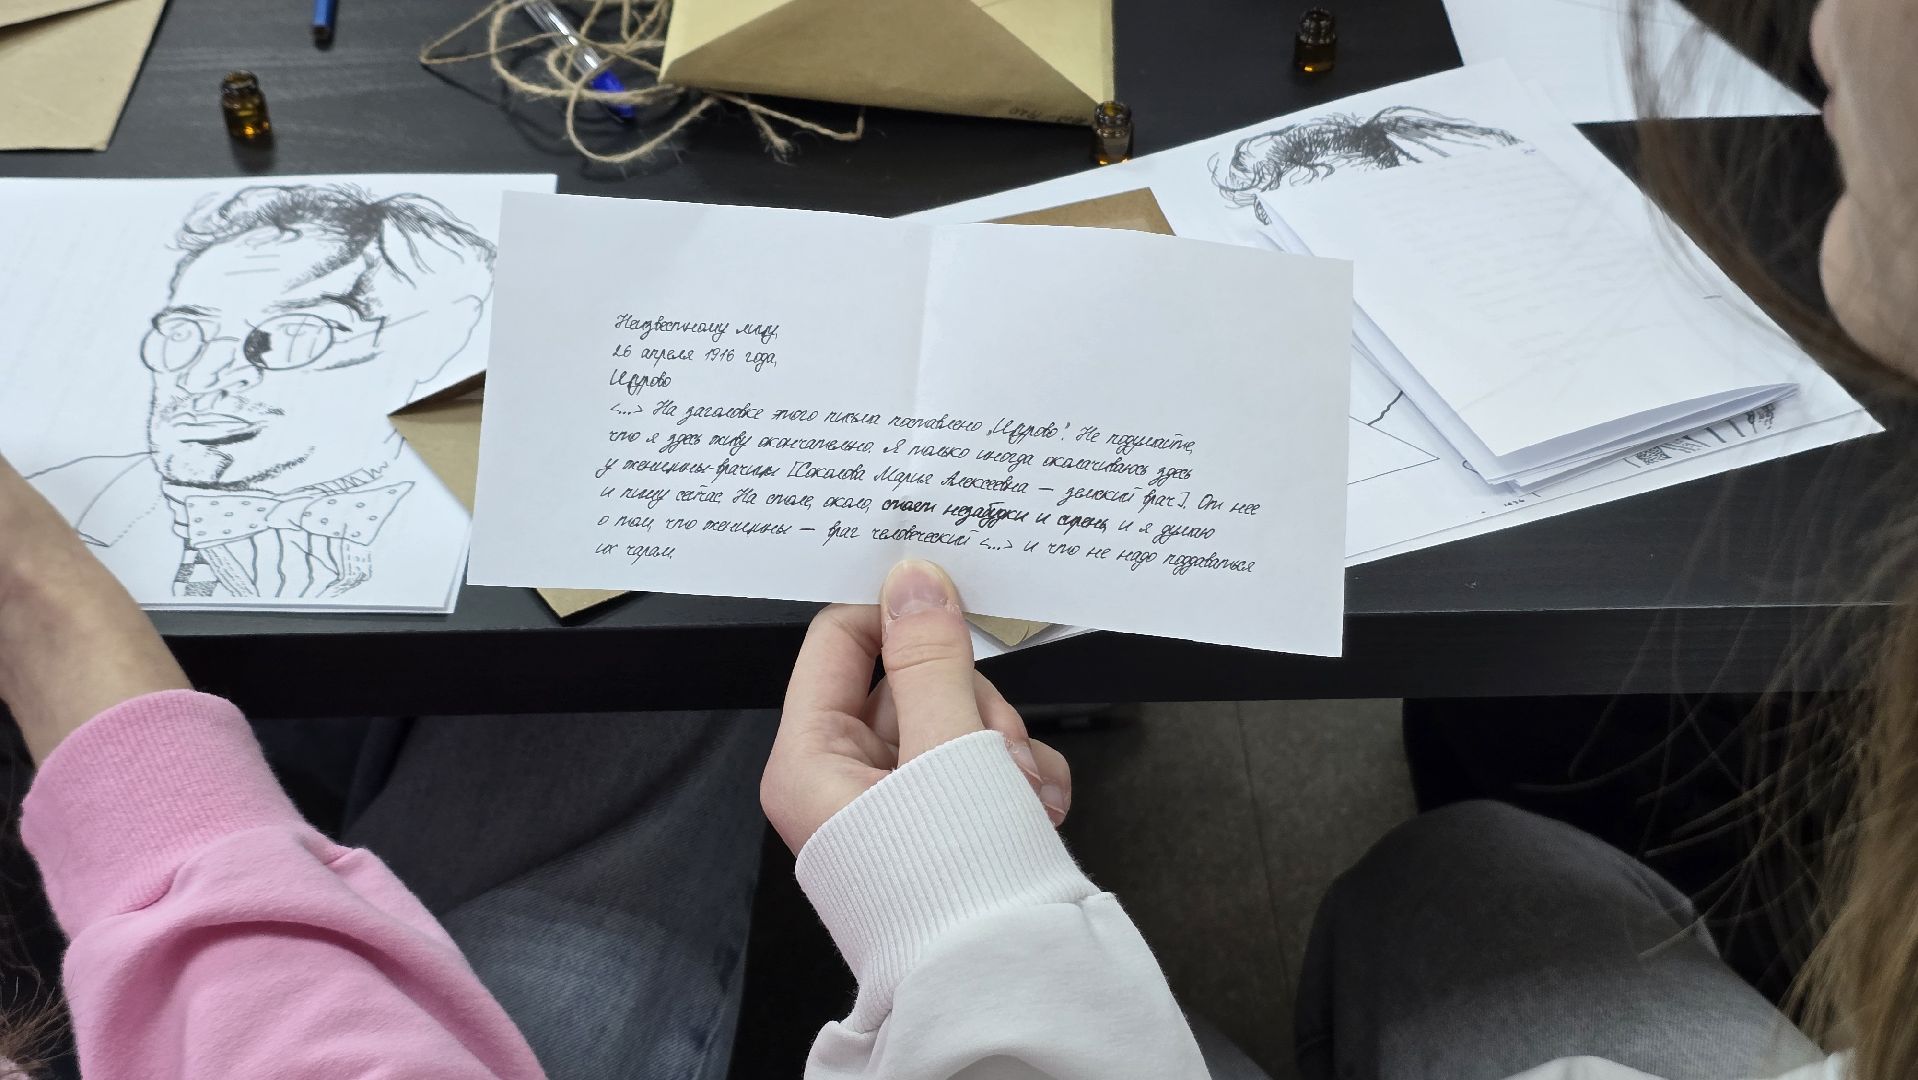 Неизвестному лицу,
26 апреля 1916 года,
Шурово
<...> На заголовке этого письма поставлено „Шурово". Не подумайте,
что я здесь живу окончательно. Я только иногда околачиваюсь здесь
у женщины-врачицы [Соколова Мария Алексеевна — земский врач]. От нее
и пишу сейчас. На столе, около, стоят незабудки и сирень, и я думаю
о том, что женщины — враг человеческий <...> и что не надо поддаваться
их чарам.